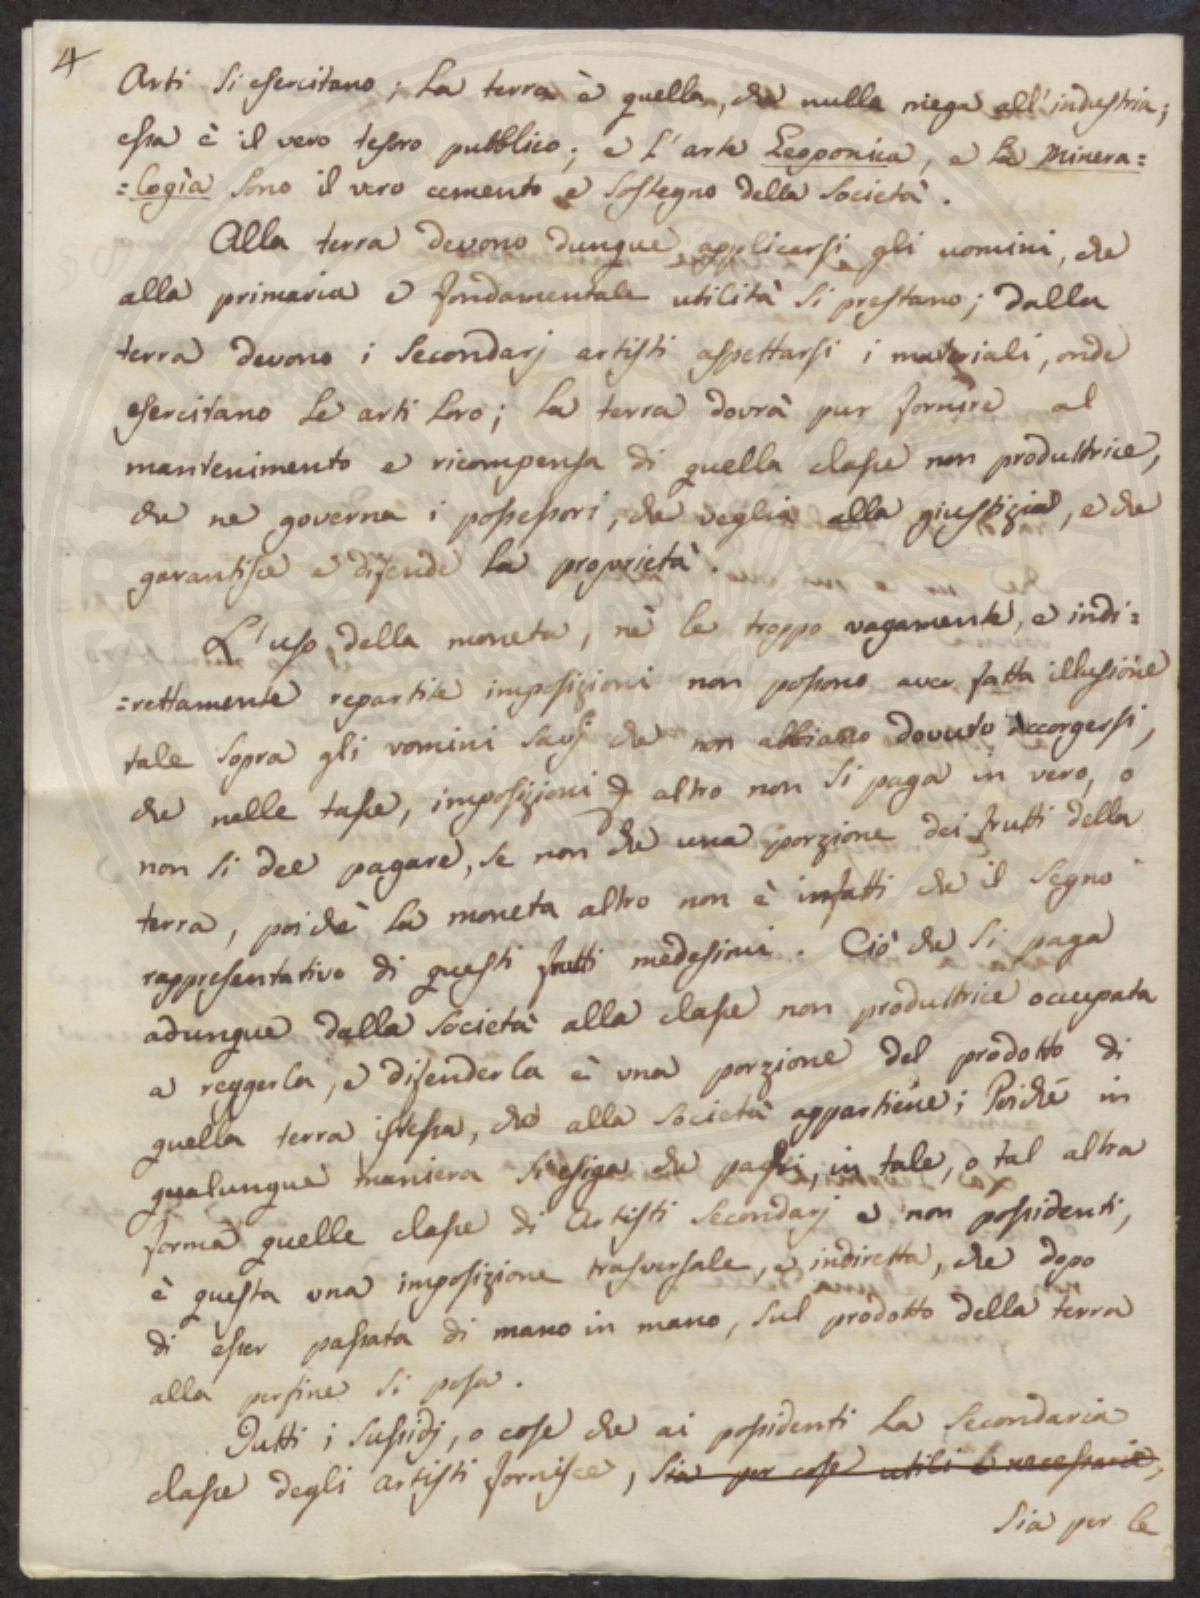 4
Arti si esercitano; La terra è quella, che nulla niega all'industria;
essa è il vero tesoro pubblico; e L'arte Geoponica, e La Minera=
=logìa sono il vero cemento e sostegno della Società.
Alla terra devono dunque applicarsi gli uomini, che
alla primaria e fondamentale utilità si prestano; dalla
terra devono i Secondarj artisti aspettarsi i materiali, onde
esercitano Le arti Loro; La terra dovrà pur fornire al
mantenimento e ricompensa di quella classe non produttrice,
che ne governa i possessori, che veglia alla giustizia, e che
garantisce e difende La proprietà.
L'uso della moneta, nè le troppo vagamente, e indi=
=rettamente repartite imposizioni non possono aver fatta illusione
tale sopra gli uomini savj che non abbiano dovuto accorgersi,
che nelle tasse, imposizioni & altro non si paga in vero, o
non si dee pagare, se non che una porzione dei frutti della
terra, poichè La moneta altro non è infatti che il segno
rappresentativo di questi frutti medesimi. Ciò che si paga
adunque dalla Società alla classe non produttrice occupata
a reggerla, e difenderla è una porzione del prodotto di
quella terra istessa, che alla Società appartiene; Poichè in
qualunque maniera si esiga che paghi, in tale, o tal altra
forma quelle classe di Artisti Secondarj e non possidenti,
è questa una imposizione trasversale, e indiretta, che dopo
di esser passata di mano in mano, sul prodotto della terra
alla perfine si posa.
Tutti i Sussidj, o cose che ai possidenti La Secondaria
classe degli artisti fornisce, sia per cose utili e necessarie,
sia per le